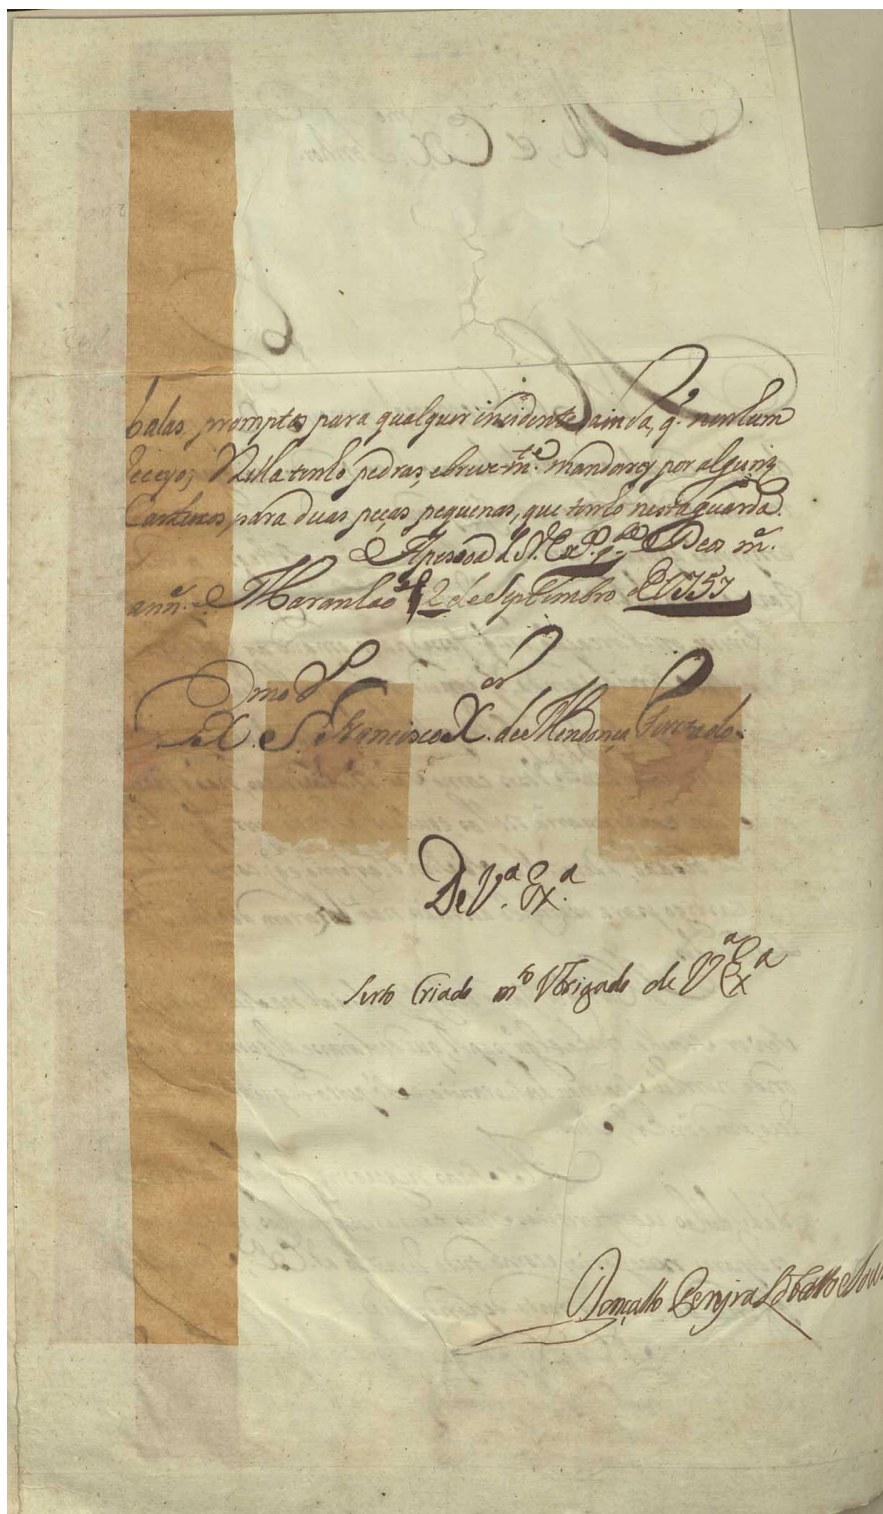 balas, promptas para qualquer incidente, ainda, q. nenhum
receyo; Nella tenho pedras, e breve-mte. mandarey por alguns
para duas peças pequenas, que tenho nesta guarda.
A pessoa de V. Exª. gde Deos mˢ.
annˢ. Maranhaõ 2 de Septembro de 1757
Illmo. e Exmo. Sr. Francisco Xer. de Mendonça Furtado.
De Vª. Exª.
Serto Criado mto Obrigado de Vª Exª
Gonçallo Pereyra Lobatto e Souza